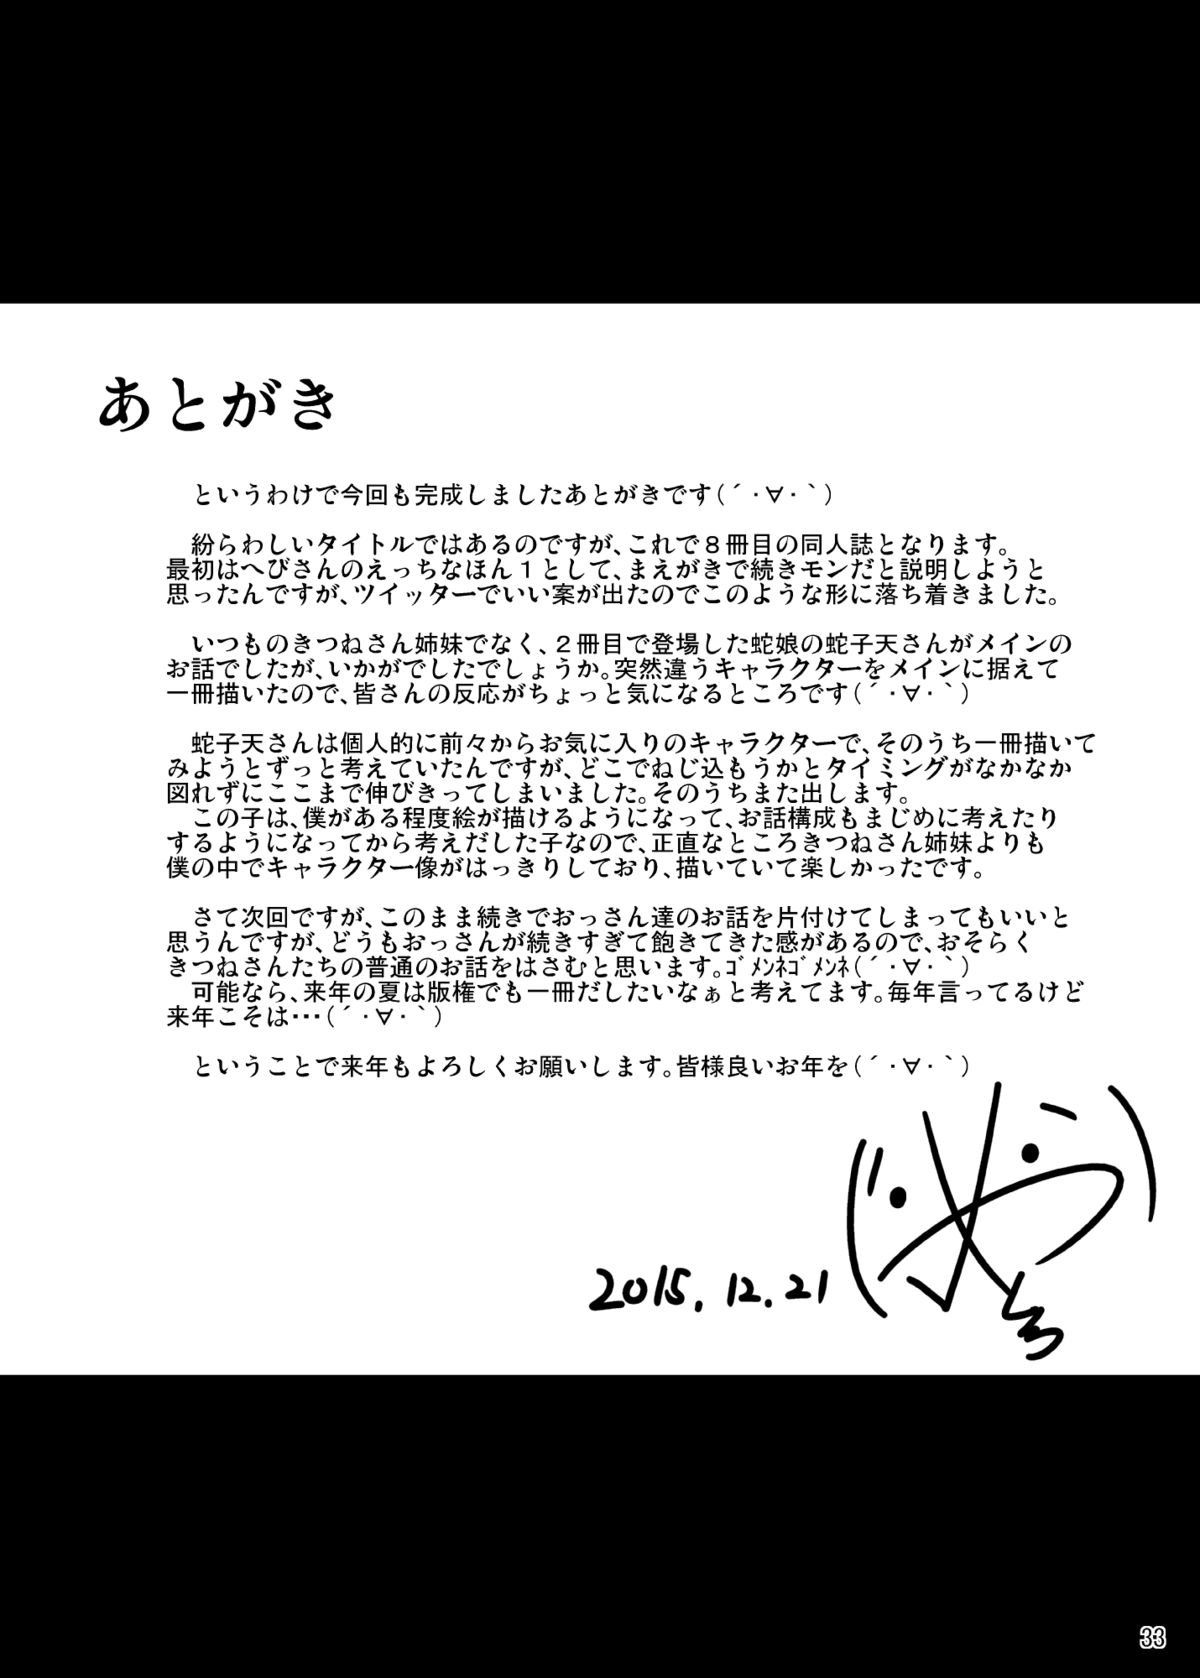 あとがき
というわけで今回も完成しましたあとがきです(´・∀・｀)
紛らわしいタイトルではあるのですが、これで８冊目の同人誌となります。
最初はへびさんのえっちなほん１として、まえがきで続きモンだと説明しようと
思ったんですが、ツイッターでいい案が出たのでこのような形に落ち着きました。
いつものきつねさん姉妹でなく、２冊目で登場した蛇娘の蛇子天さんがメインの
お話でしたが、いかがでしたでしょうか。突然違うキャラクターをメインに据えて
一冊描いたので、皆さんの反応がちょっと気になるところです(´・∀・｀)
蛇子天さんは個人的に前々からお気に入りのキャラクターで、そのうち一冊描いて
みようとずっと考えていたんですが、どこでねじ込もうかとタイミングがなかなか
図れずにここまで伸びきってしまいました。そのうちまた出します。
この子は、僕がある程度絵が描けるようになって、お話構成もまじめに考えたり
するようになってから考えだした子なので、正直なところきつねさん姉妹よりも
僕の中でキャラクター像がはっきりしており、描いていて楽しかったです。
さて次回ですが、このまま続きでおっさん達のお話を片付けてしまってもいいと
思うんですが、どうもおっさんが続きすぎて飽きてきた感があるので、おそらく
きつねさんたちの普通のお話をはさむと思います。ｺﾞﾒﾝﾈｺﾞﾒﾝﾈ(´・∀・｀)
可能なら、来年の夏は版権でも一冊だしたいなぁと考えてます。毎年言ってるけど
来年こそは･･･(´・∀・｀)
ということで来年もよろしくお願いします。皆様良いお年を(´・∀・｀)
2015.12.21
33